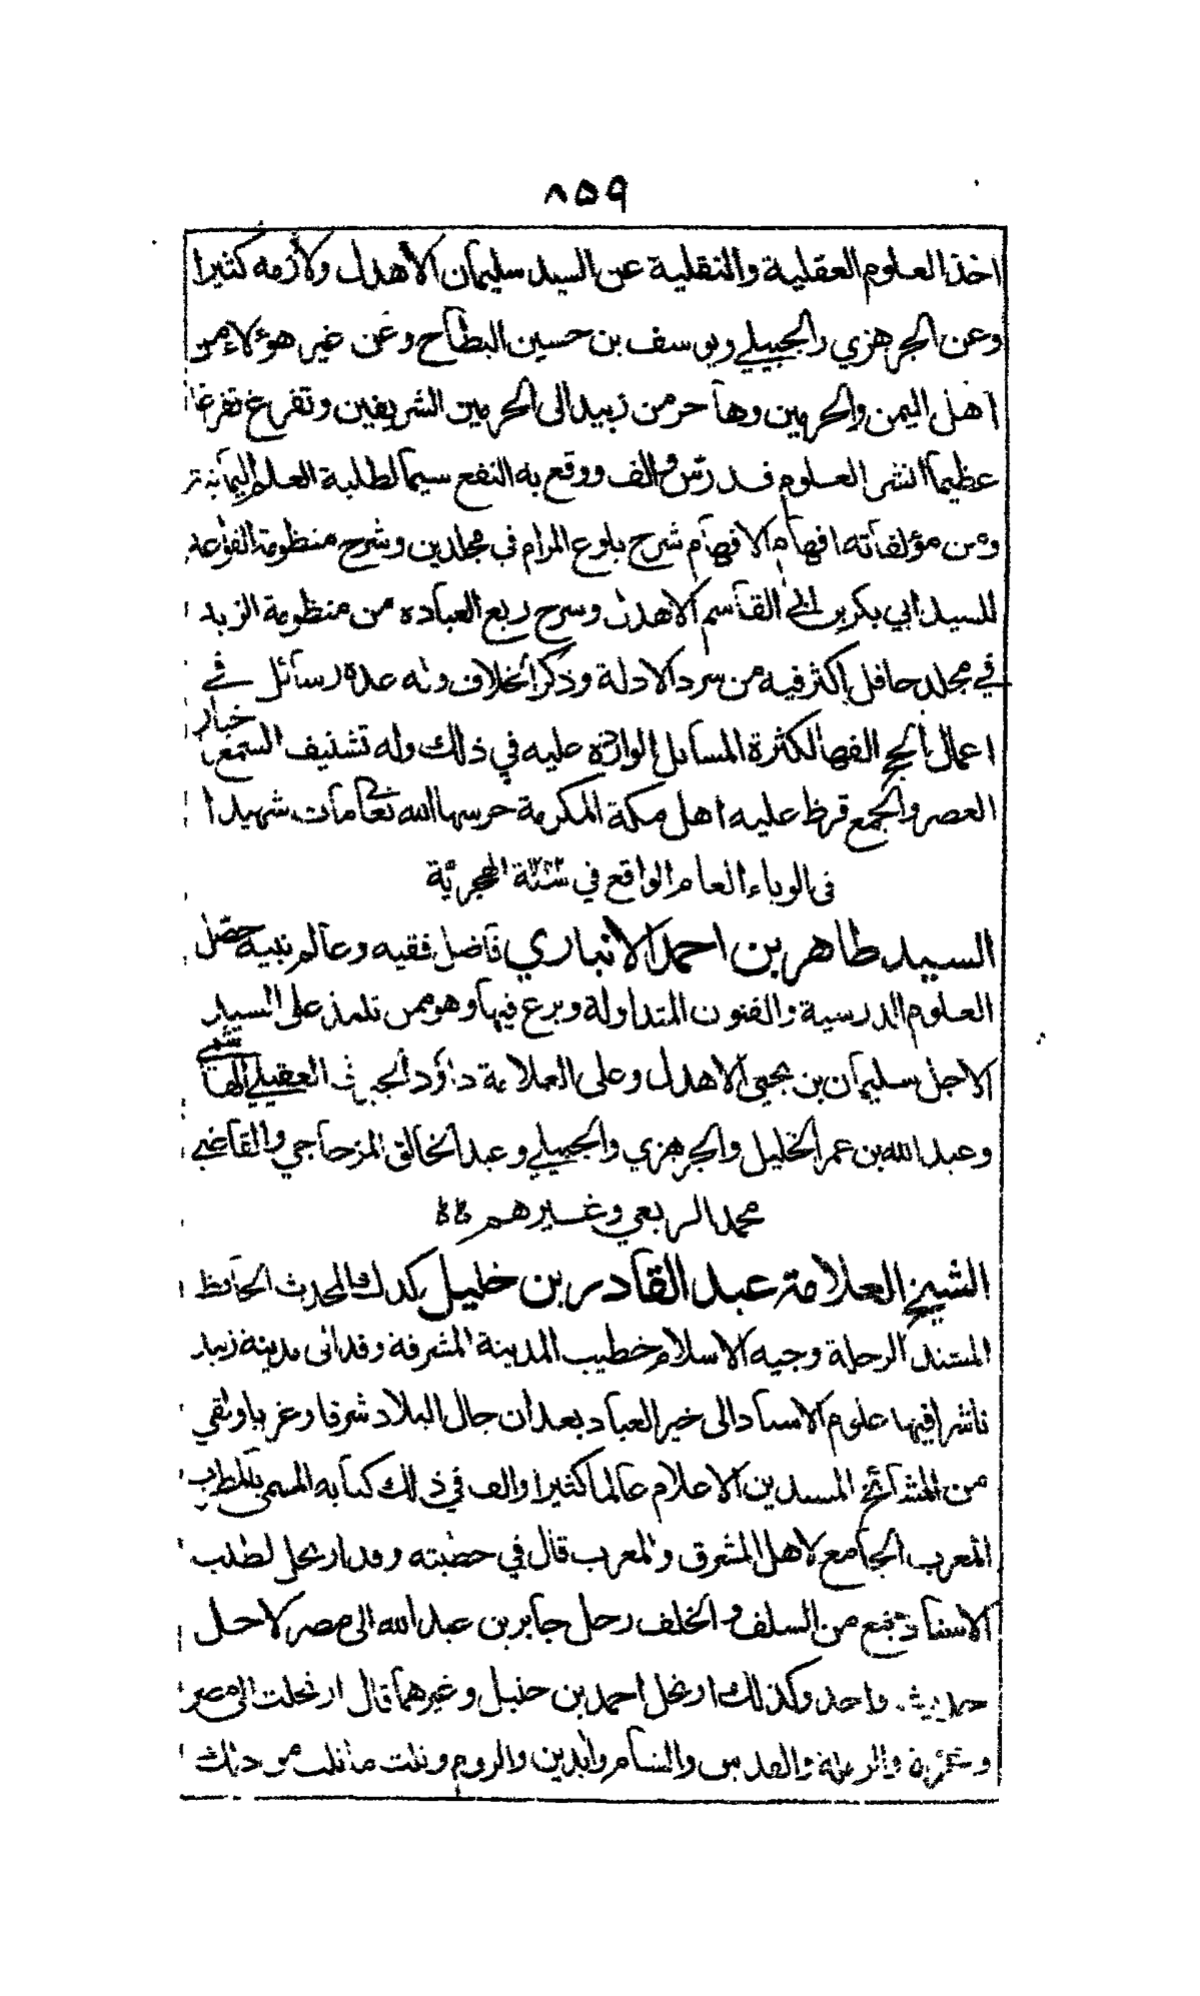 ٨٥٩
اخذ العلوم العقلية والنقلية عن السيد سليمان الأهدل ولازمه كثيرا
وعن الجرهزي والجبيلي ويوسف بن حسين البطاح وعن غير هؤلاء من
اهل اليمن والحرمين وهاجر من زبيد الى الحرمين الشريفين وتفرغ تفرغا
عظيما لنشر العلوم فدرّس والف ووقع به النفع سيما لطلبة العلم اليمانية
ومن مؤلفاته افهام الافهام شرح بلوغ المرام في مجلدين وشرح منظومة القواعد
للسيد ابي بكر بن ابي القاسم الاهدل وشرح ربع العبادة من منظومة الزبد
في مجلد حافل اكثر فيه من سرد الادلة وذكر الخلاف وله عدة رسائل في
اعمال الحج الفها لكثرة المسائل الواردة عليه في ذلك وله تشنيف السمع باخبار
العصر والجمع قرظ عليه اهل مكة المكرمة حرسها الله تعالى مات شهيدا
في الوباء العام الواقع في سنة الهجرية
السيد طاهر بن احمد الانباري فاضل فقيه وعالم نبيه حصّل
العلوم الدرسية والفنون المتداولة وبرع فيها وهو ممن تلمذ على السيد
الاجل سليمان بن يحيى الاهدل وعلى العلامة داؤد الجبرتي العقيلي الهاشمي
وعبد الله بن عمر الخليل والجرهزي والجبيلي وعبد الخالق المزجاجي والقاضي
محمد الربعي وغيرهم
الشيخ العلامة عبد القادر بن خليل كدك المحدث الحافظ
المسند الرحلة وجيه الاسلام خطيب المدينة المشرفة وفد الى مدينة زبيد
ناشرا فيها علوم الاسناد الى خير العباد بعد ان جال البلاد شرقا وغربا ولقي
من المشائخ المسندين الاعلام عالما كثيرا والف في ذلك كتابه المسمى بالمطرب
المعرب الجامع لاهل المشرق والمغرب قال في خطبته وقد ارتحل لطلب
الاسناد جمع من السلف والخلف رحل جابر بن عبد الله الى مصر لاجل
حديث واحد وكذلك ارتحل احمد بن حنبل وغيرهما قال ارتحلت الى مصر
وغزة والرملة والقدس والشام والروم ونلت ما نلت من ذلك